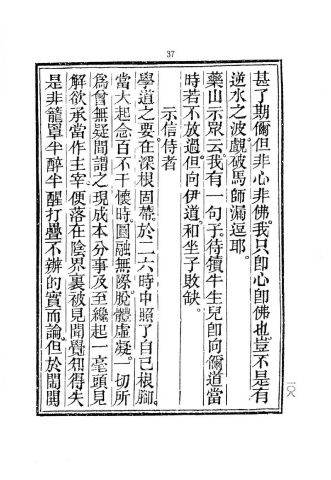 37
甚了期儞但非心非佛。我只卽心卽佛也豈不是有
逆水之波覷破馬師漏逗耶。
藥山示眾云我有一句子。待犢牛生兒卽向儞道當
時若不放過。但向伊道。和坐子敗缺。
示信侍者
學道之要在深根固蔕。於二六時中照了自己根腳。
當大起念百不干懷時。圓融無際脫體虛凝。一切所
爲曾無疑間謂之現成本分事及至纔起一毫頭見
解欲承當作主宰。便落在陰界裏被見聞覺知得失
是非籠罩半醉半醒打疊不辦的實而論。但於鬧鬨